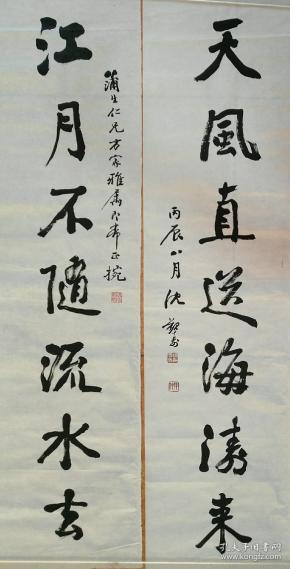 天風直送海濤来
丙辰八月 沈
江月不随流水去
蒲生仁兄方家雅属 即希正腕
孔夫子旧书网